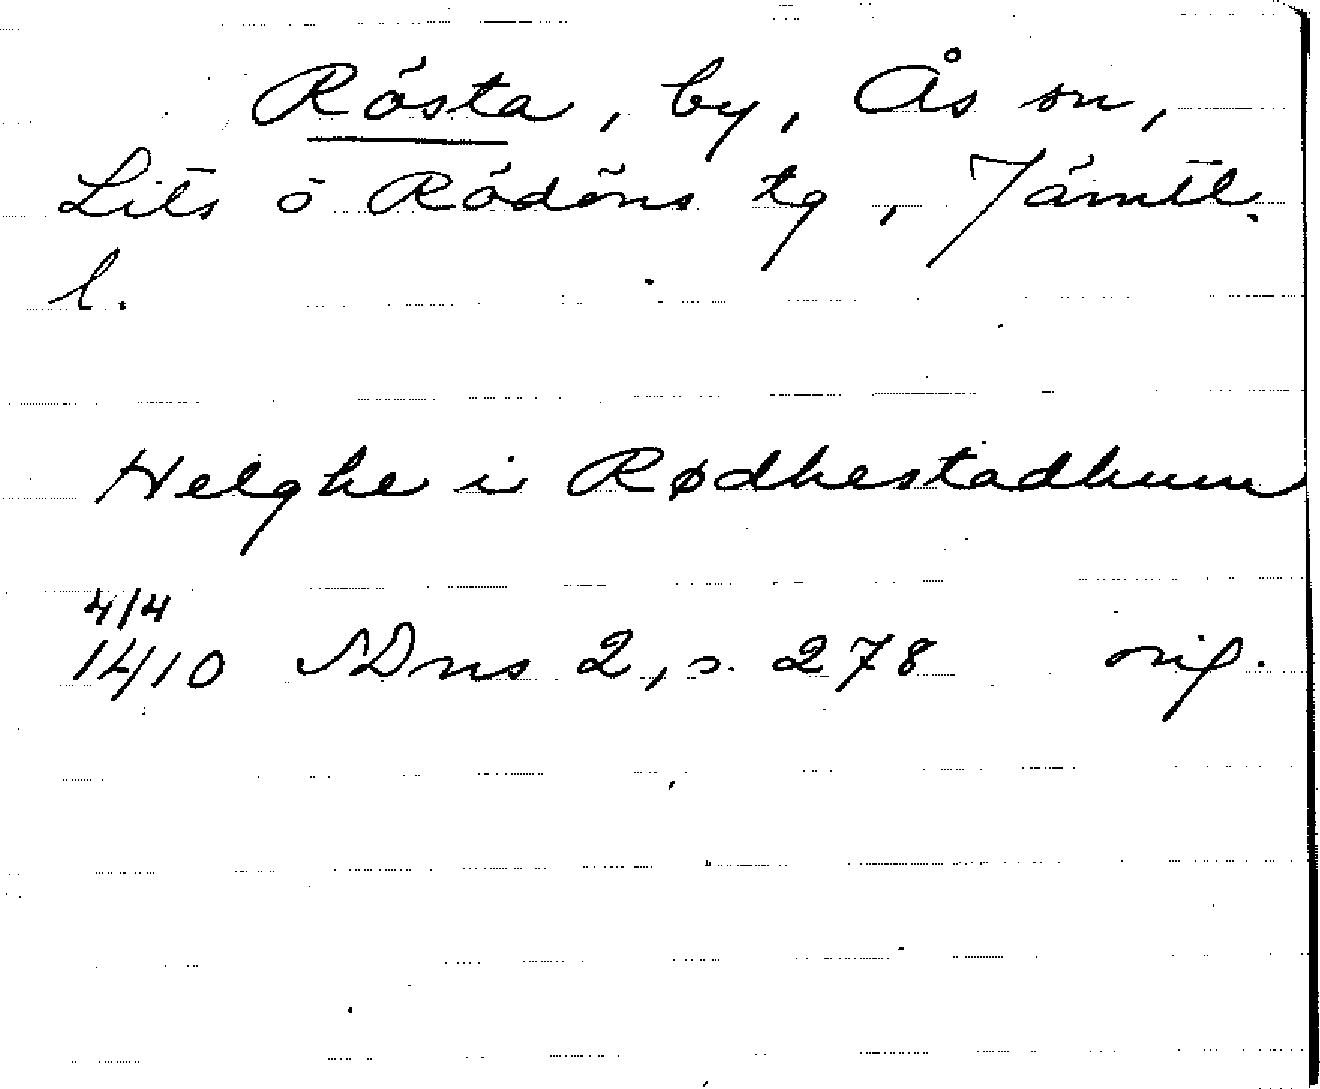 Rösta, by, Ås sn,
Lits o Rödöns tg, Jämtl.
l.
Helghe i Rødhestadhum
4/4
1410 SDns 2, s. 278 orig.